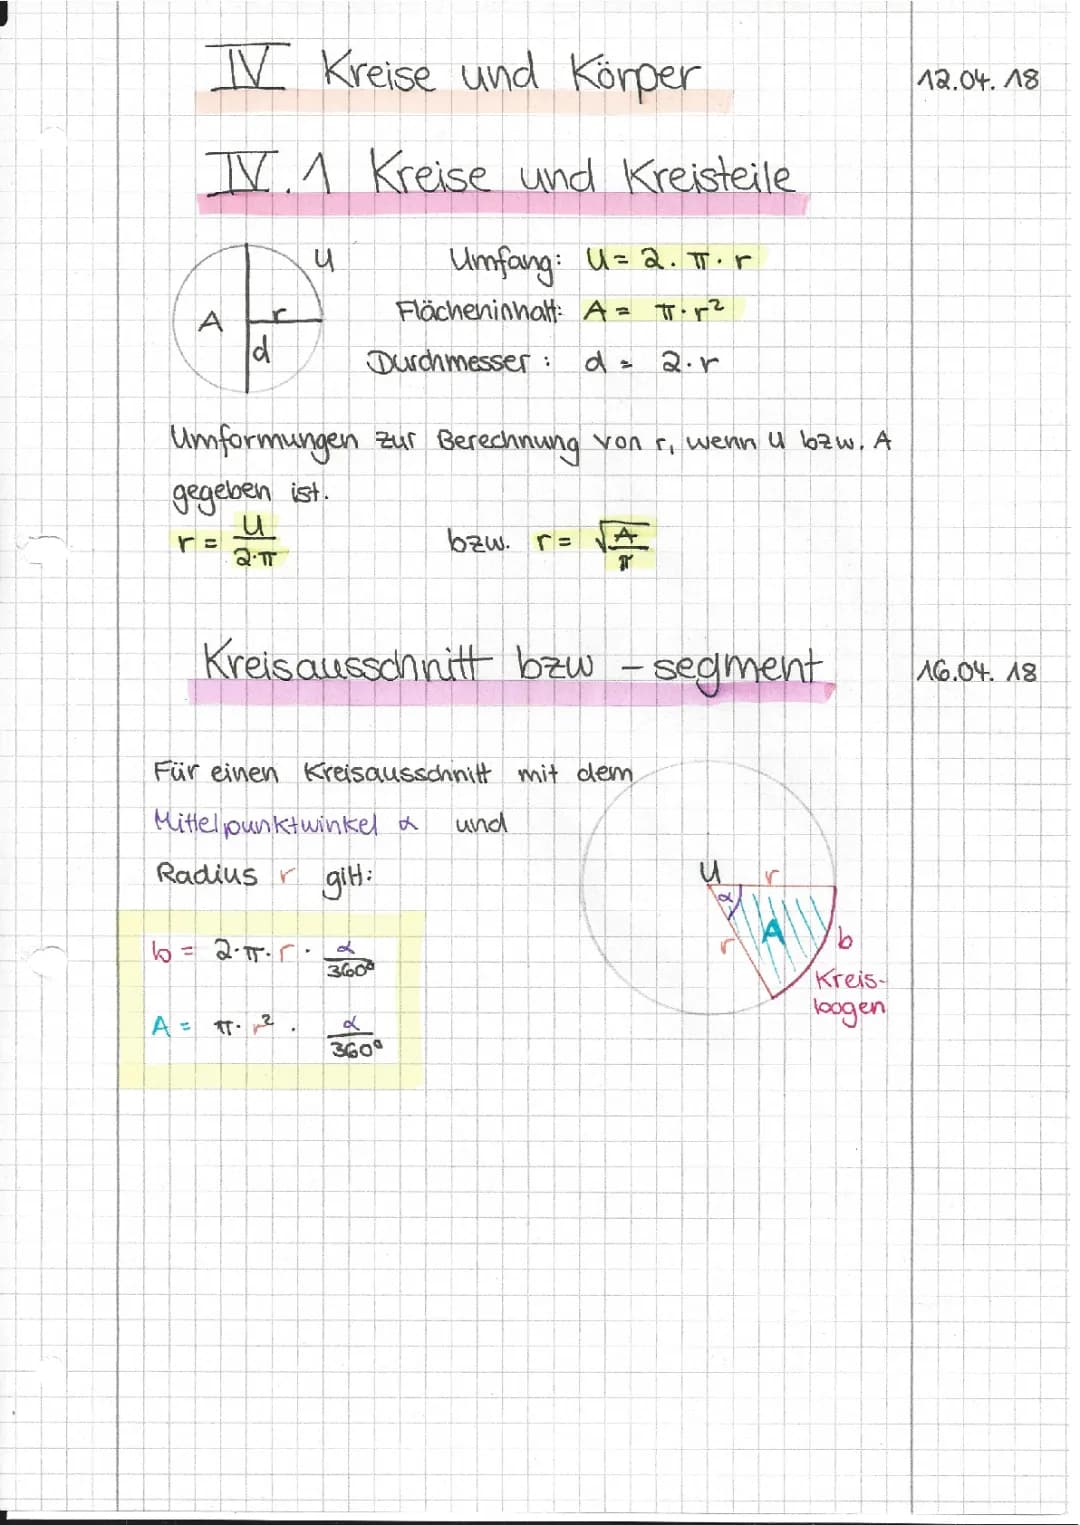 IV Kreise und Körper
12.04.18
IV.1 Kreise und Kreisteile
u
A
r
d
Umfang: U = 2·π·r
Flächeninhalt: A = π·r²
Durchmesser: d = 2·r
Umformungen zur Berechnung von r, wenn U bzw. A
gegeben ist.
r = U/2·π bzw. r = √A/π
Kreisausschnitt bzw -segment
16.04.18
Für einen Kreisausschnitt mit dem
Mittelpunktwinkel α und
Radius r gilt:
b = 2·π·r· α/360°
A = π·r²· α/360°
U
r
α
r
A
b
Kreis-
bogen